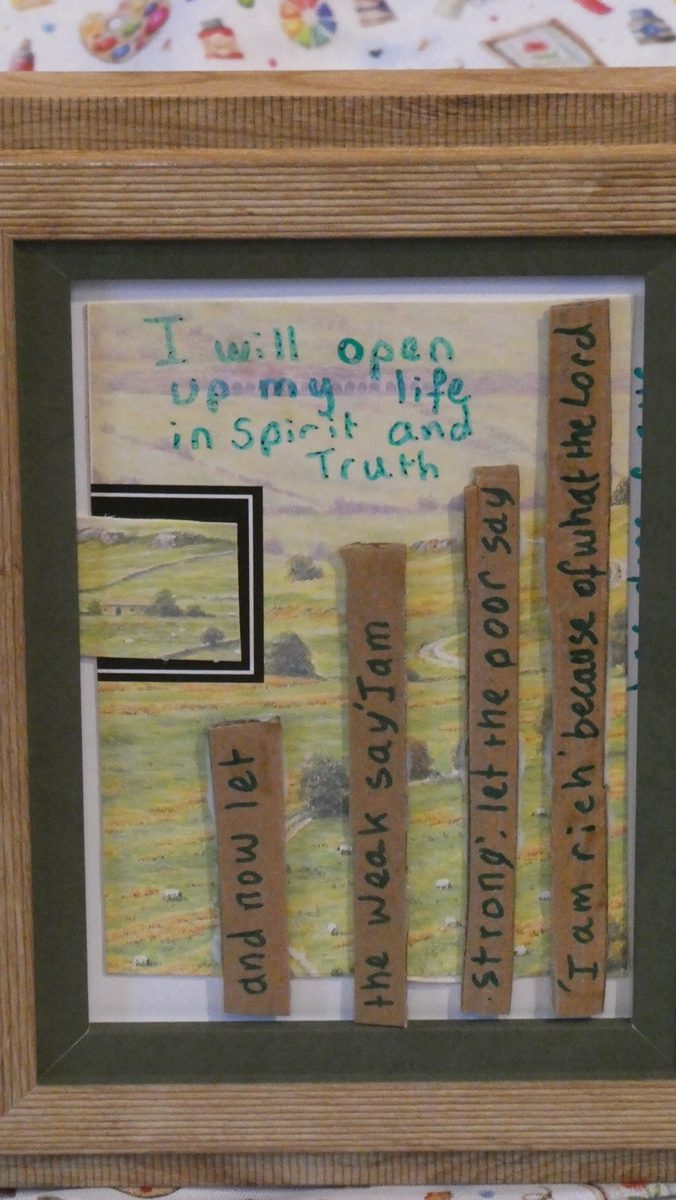 I will open
up my life
in Spirit and
Truth
and now let
the weak say 'I am
strong'. let the poor say
'I am rich' because of what the Lord